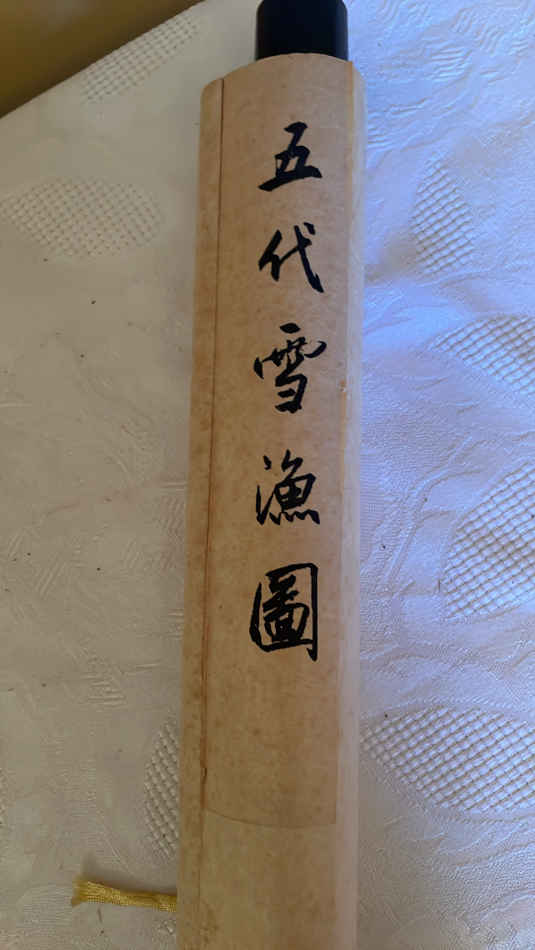 五代雪漁圖